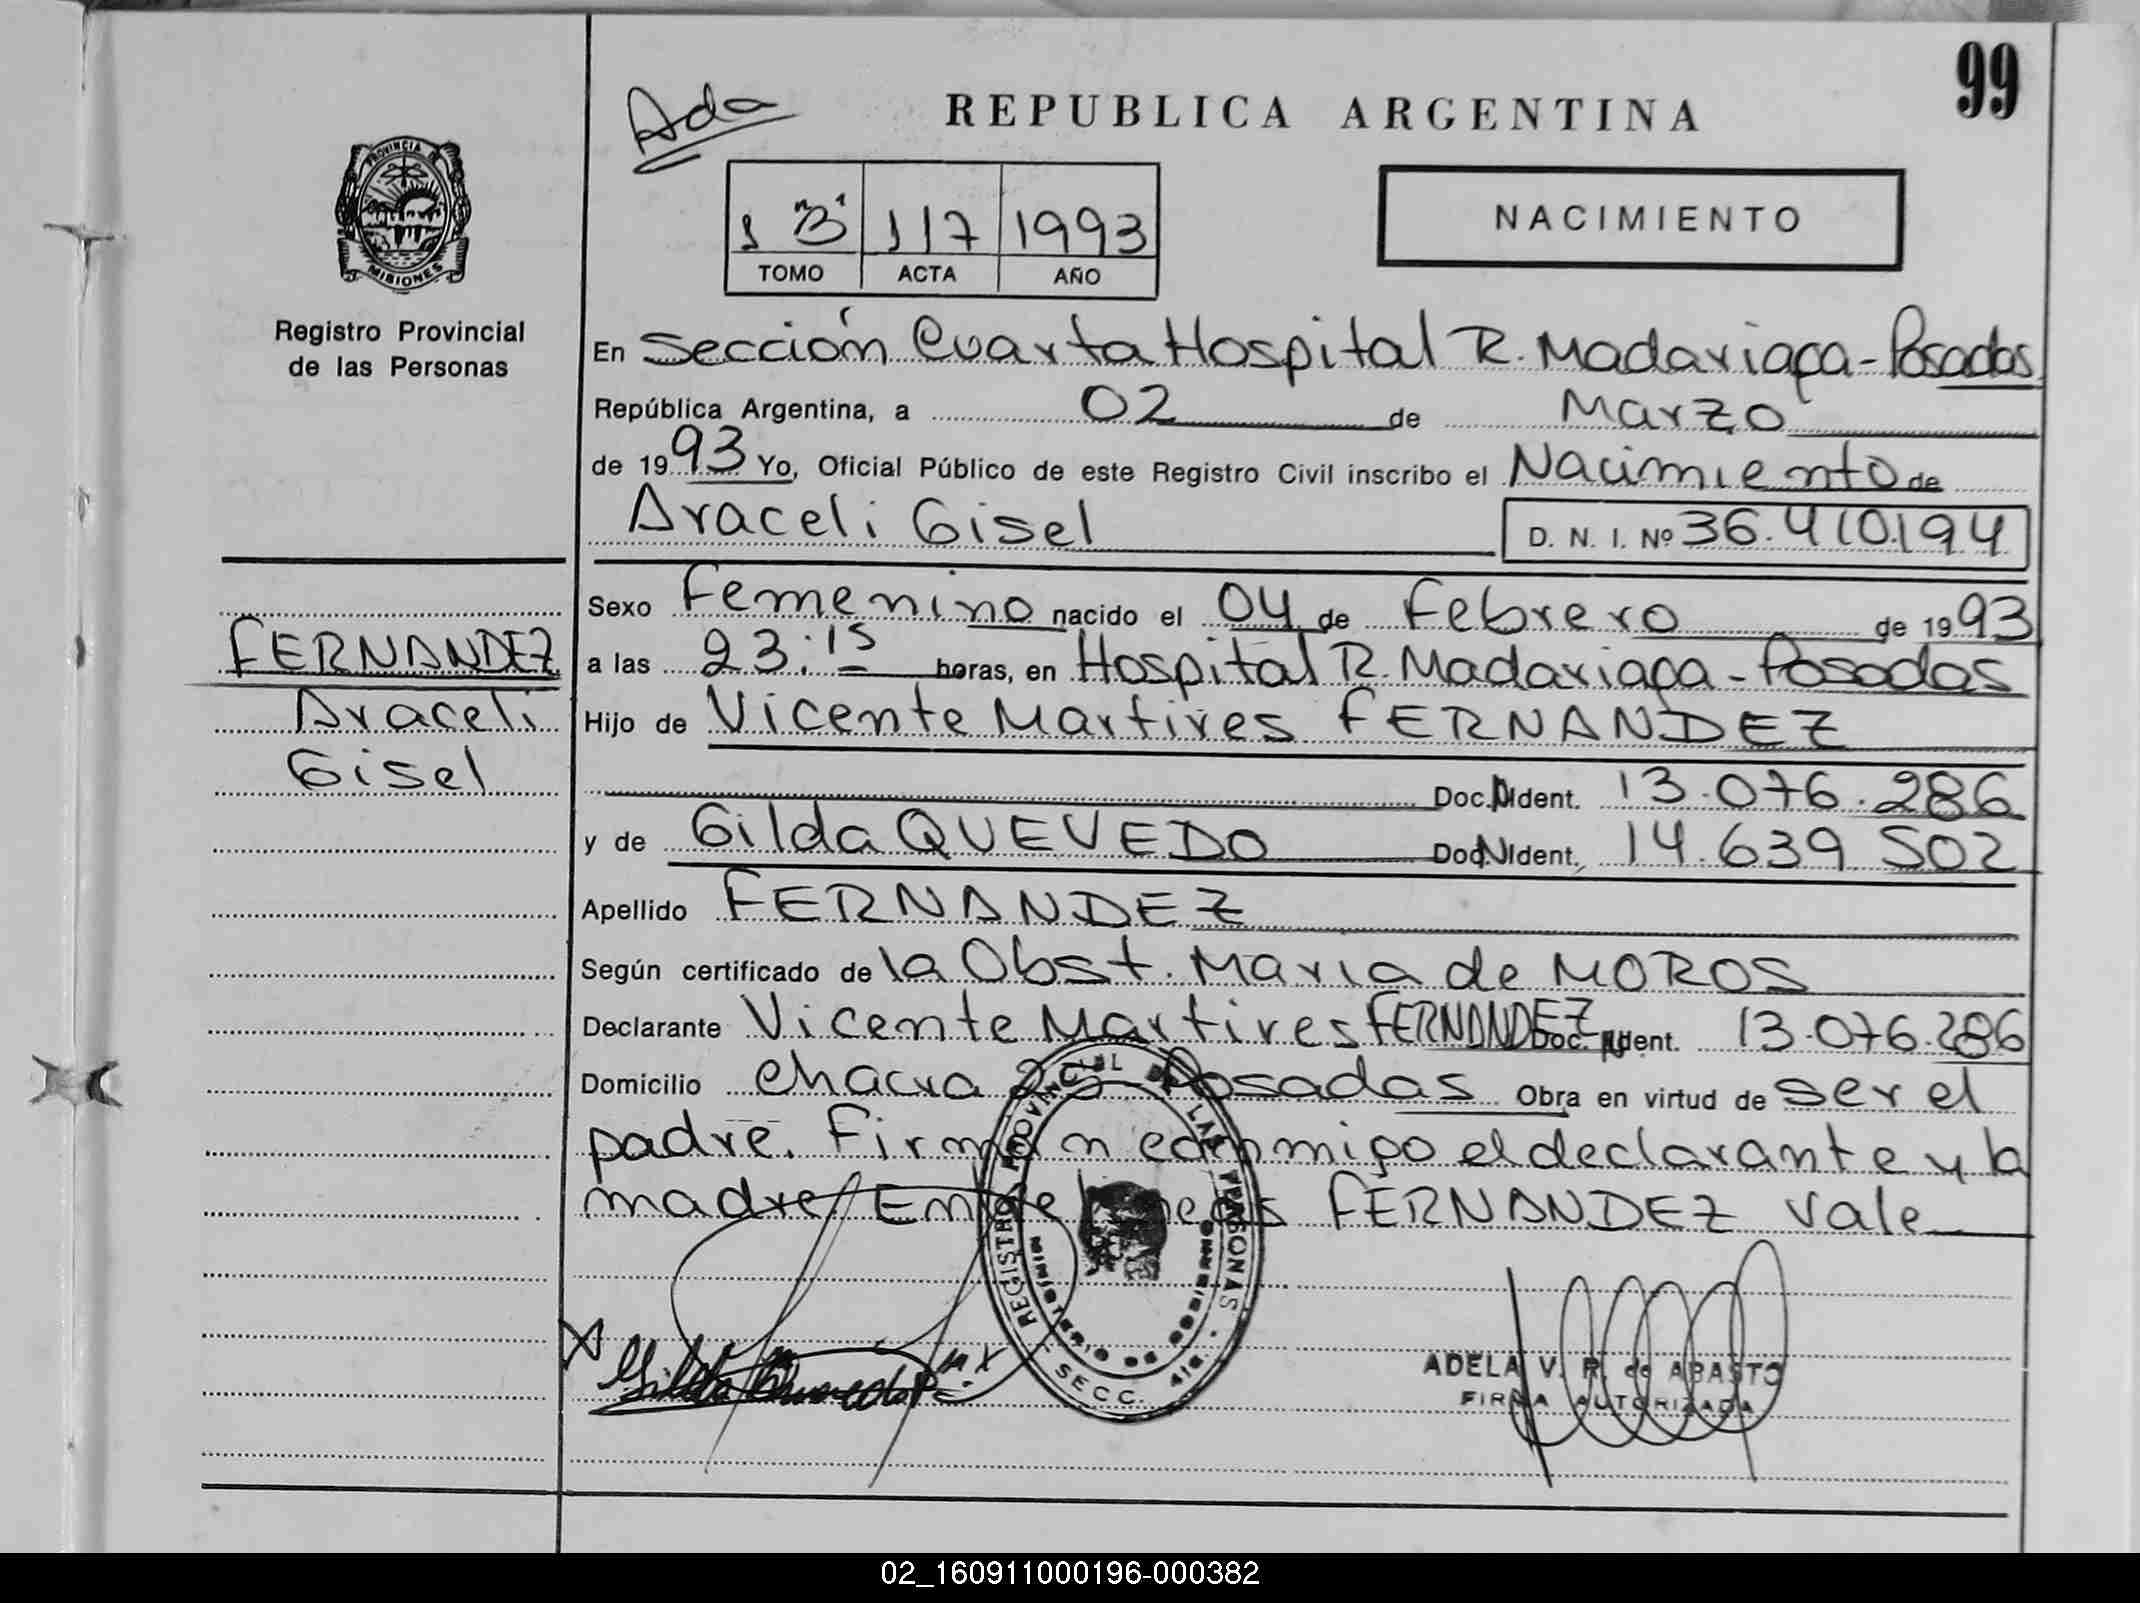 99
Ada
REPUBLICA ARGENTINA
PROVINCIA D MISIONES
1 "B" 117 1993
TOMO ACTA AÑO
NACIMIENTO
Registro Provincial
de las Personas
En Sección Cuarta Hospital R. Madariaga - Posadas
República Argentina, a 02 de Marzo
de 1993 Yo, Oficial Público de este Registro Civil inscribo el Nacimiento de
Araceli Gisel D. N. I. Nº 36.410.194
Sexo Femenino nacido el 04 de Febrero de 1993
FERNANDEZ
Araceli
Gisel
a las 23:15 horas, en Hospital R. Madariaga - Posadas
Hijo de Vicente Martires FERNANDEZ
Doc. N Ident. 13.076.286
y de Gilda QUEVEDO Doc. N Ident. 14.639.502
Apellido FERNANDEZ
Según certificado de la Obst. Maria de MOROS
Declarante Vicente Martires FERNANDEZ Doc. N Ident. 13.076.286
Domicilio chacra 25 Posadas Obra en virtud de ser el
padre. Firman conmigo el declarante y la
madre Entre lineas FERNANDEZ Vale
REGISTRO PROVINCIAL DE LAS PERSONAS
MINISTERIO DE GOBIERNO
SECC. 4ta.
ADELA V. R. de ABASTO
FIRMA AUTORIZADA
02_160911000196-000382